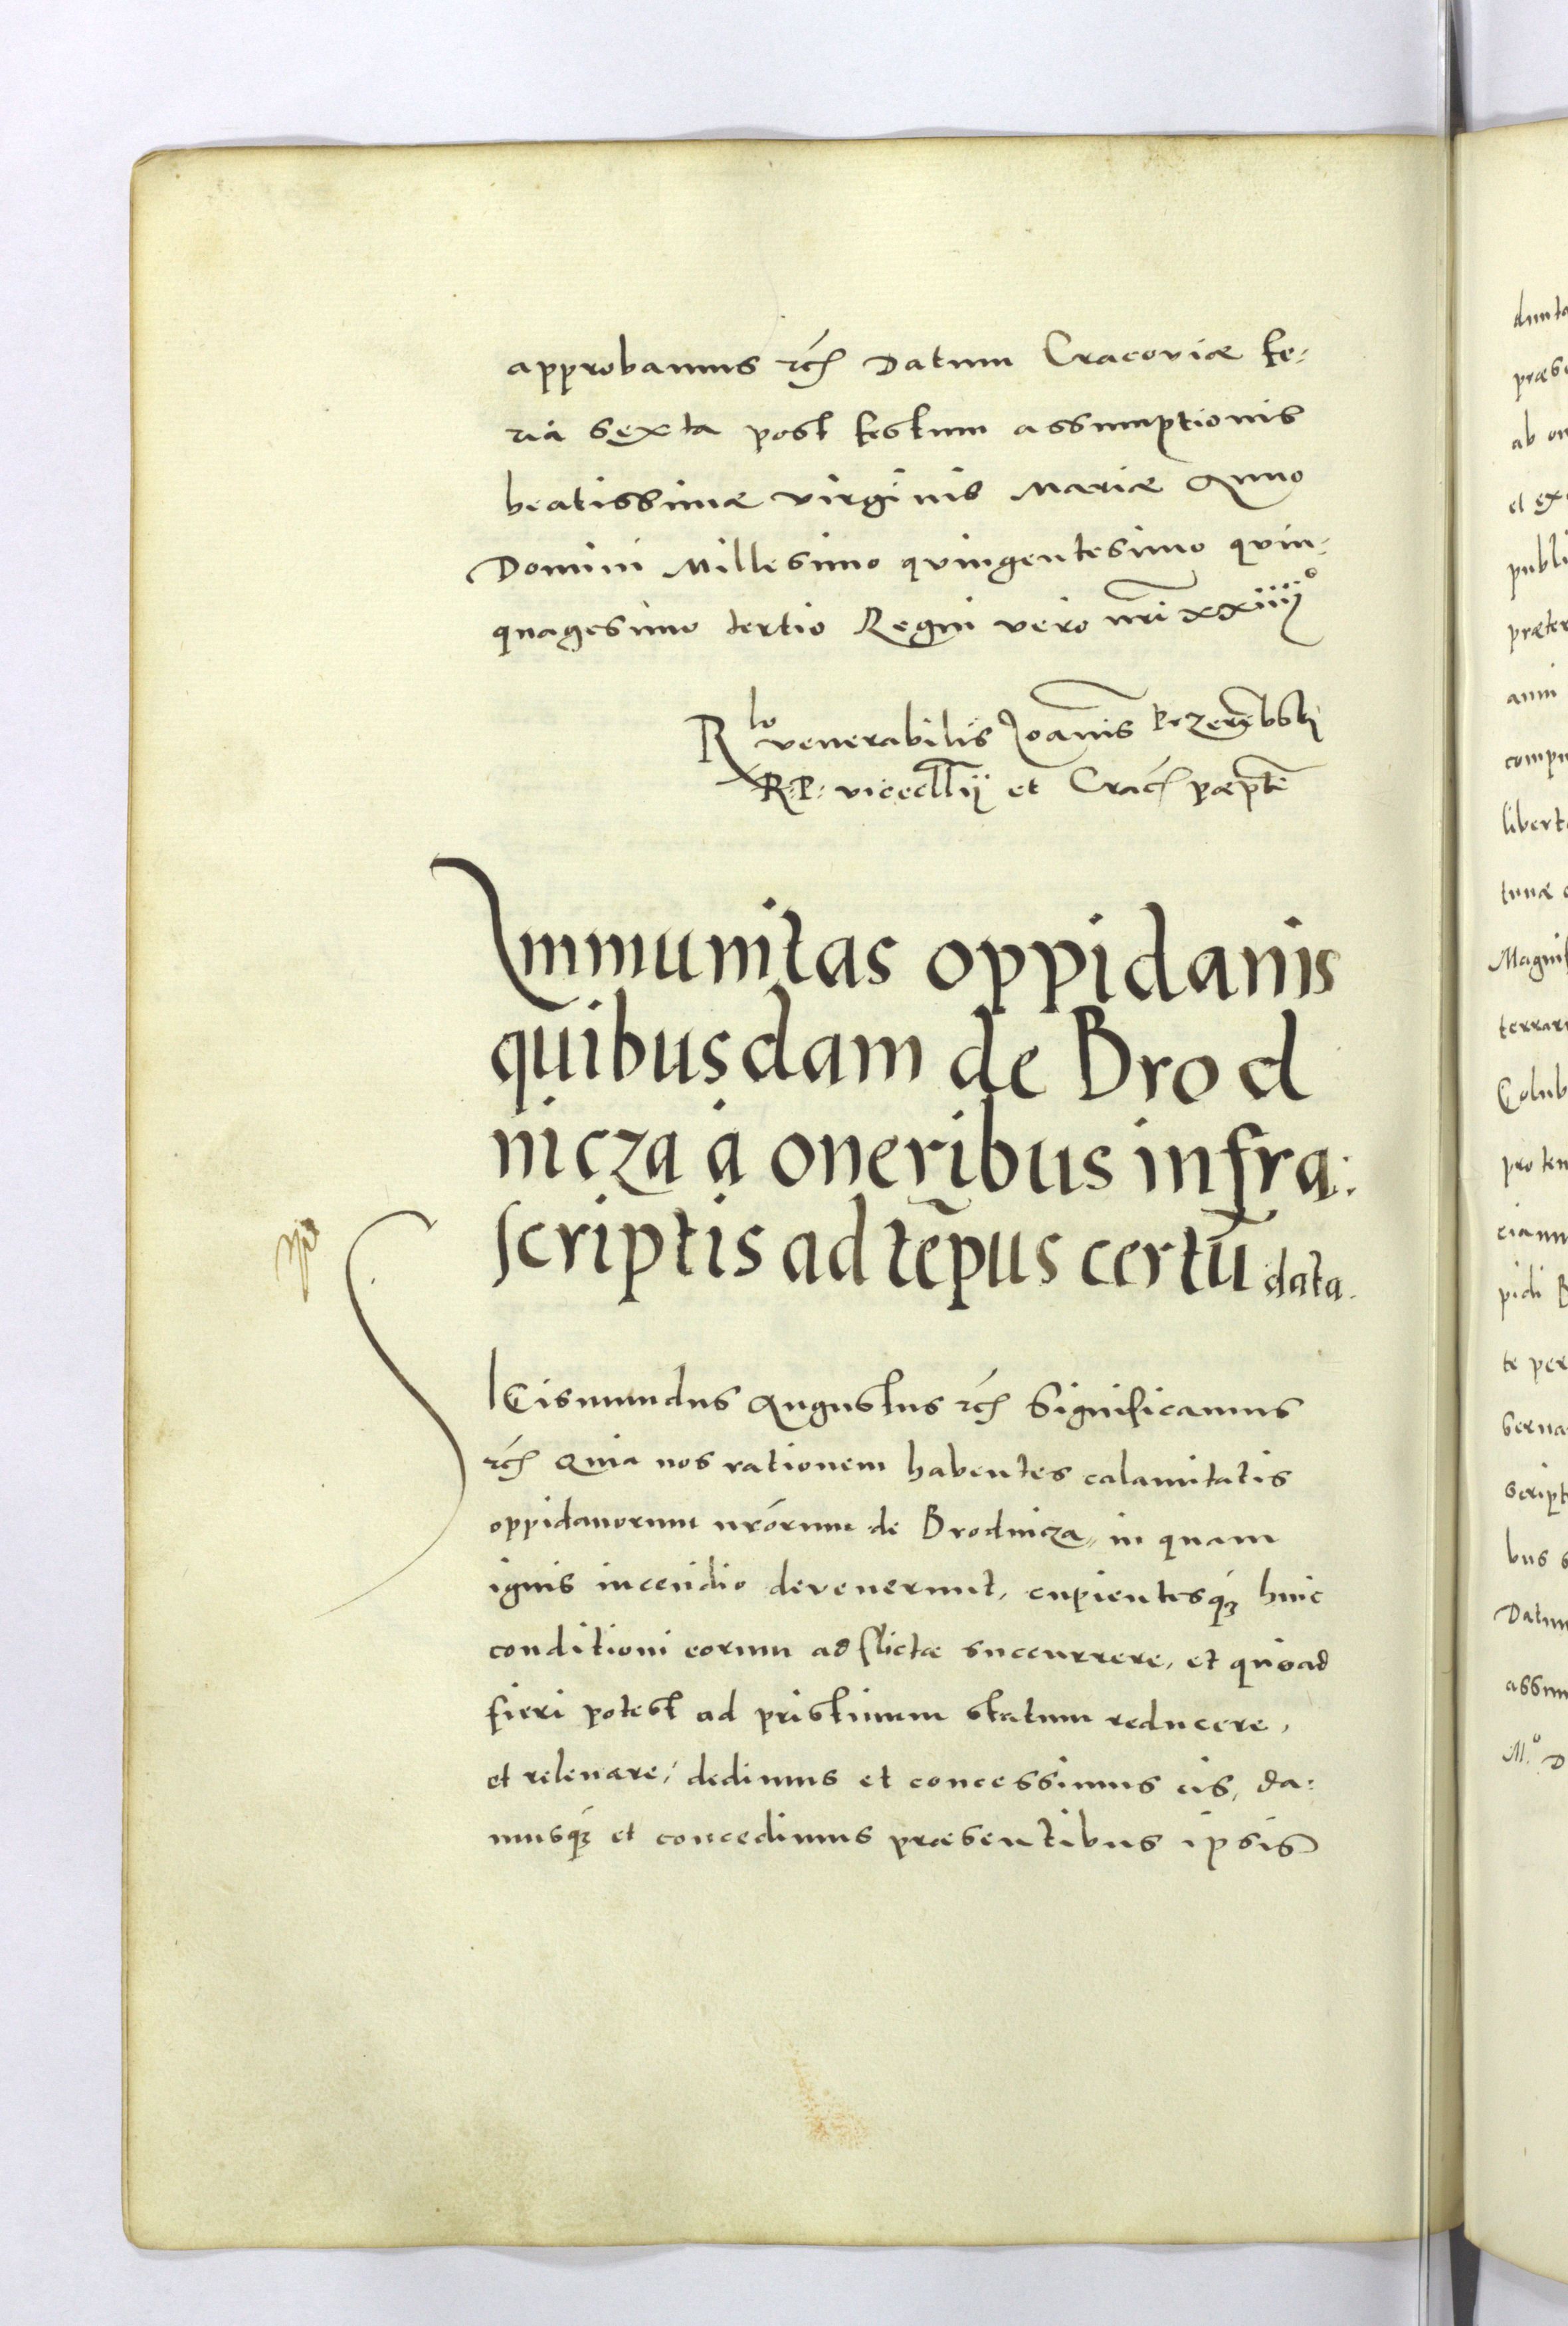 approbamus etc Datum Cracoviæ fe-
ria sexta post festum assumptionis
beatissimæ virginis Mariæ Anno
Domini Millesimo quingentesimo quin-
quagesimo tertio Regni vero nri xxiiij°
Rlo venerabilis Joanis Przerębski
R. P. vicecllij et Crac præpti
Immunitas oppidanis
quibusdam de Brod
nicza à oneribus infra:
scriptis ad tēpus certū data.
SIGismundus Augustus etc Significamus
etc Quia nos rationem habentes calamitatis
oppidanorum nrorum de Brodnicza, in quam
ignis incendio devenerunt, cupientesq; huic
conditioni eorum adflictæ succurrere, et quoad
fieri potest ad pristinum statum reducere,
et relevare, dedimus et concessimus eis, da:
musq; et concedimus præsentibus ipsis
dunta
præse
ab on
et exa
publi
præter
anni
compu
libert
tunæ
Magnif
terrar
Colub
pro tem
ciann
pidi B
te per
serua
script
bus s
Datum
assum
M.° D